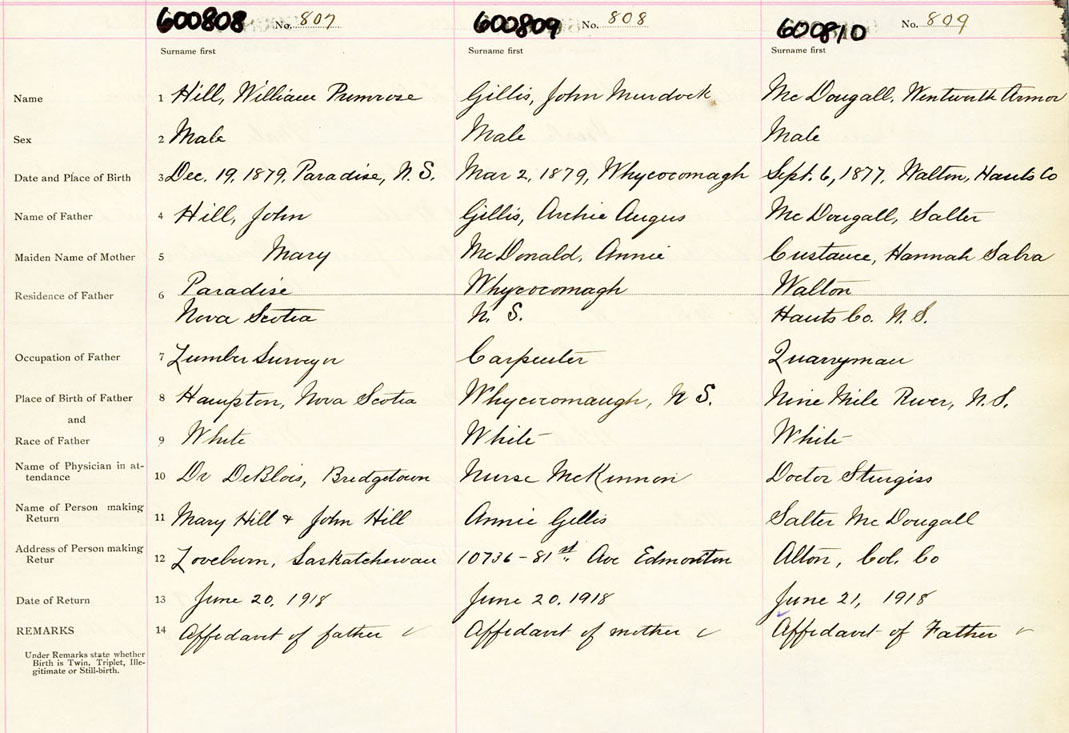 600808 No. 807 600809 No. 808 600810 No. 809
Surname first Surname first Surname first
Name 1 Hill, William Primrose Gillis, John Murdock Mc Dougall, Wentworth Armor
Sex 2 Male Male Male
Date and Place of Birth 3 Dec. 19, 1879, Paradise, N. S. Mar 2, 1879, Whycocomagh Sept. 6, 1877. Walton, Hants Co
Name of Father 4 Hill, John Gillis, Archie Angus Mc Dougall, Salter
Maiden Name of Mother 5 Mary McDonald, Annie Custance, Hannah Sabra
Residence of Father 6 Paradise Whycocomagh Walton
Nova Scotia N. S. Hants Co. N. S.
Occupation of Father 7 Lumber Surveyor Carpenter Quarryman
Place of Birth of Father 8 Hampton, Nova Scotia Whycocomaugh, N S. Nine Mile River, N. S.
and
Race of Father 9 White White White
Name of Physician in at-
tendance 10 Dr DeBlois, Bridgetown Nurse McKinnon Doctor Sturgiss
Name of Person making
Return 11 Mary Hill & John Hill Annie Gillis Salter Mc Dougall
Address of Person making
Retur 12 Loveburn, Saskatchewan 10736-81st. Ave Edmonton Alton, Col. Co
Date of Return 13 June 20, 1918 June 20, 1918 June 21, 1918
REMARKS 14 Affidavit of father Affidavit of mother Affidavit of Father
Under Remarks state whether
Birth is Twin, Triplet, Ille-
gitimate or Still-birth.